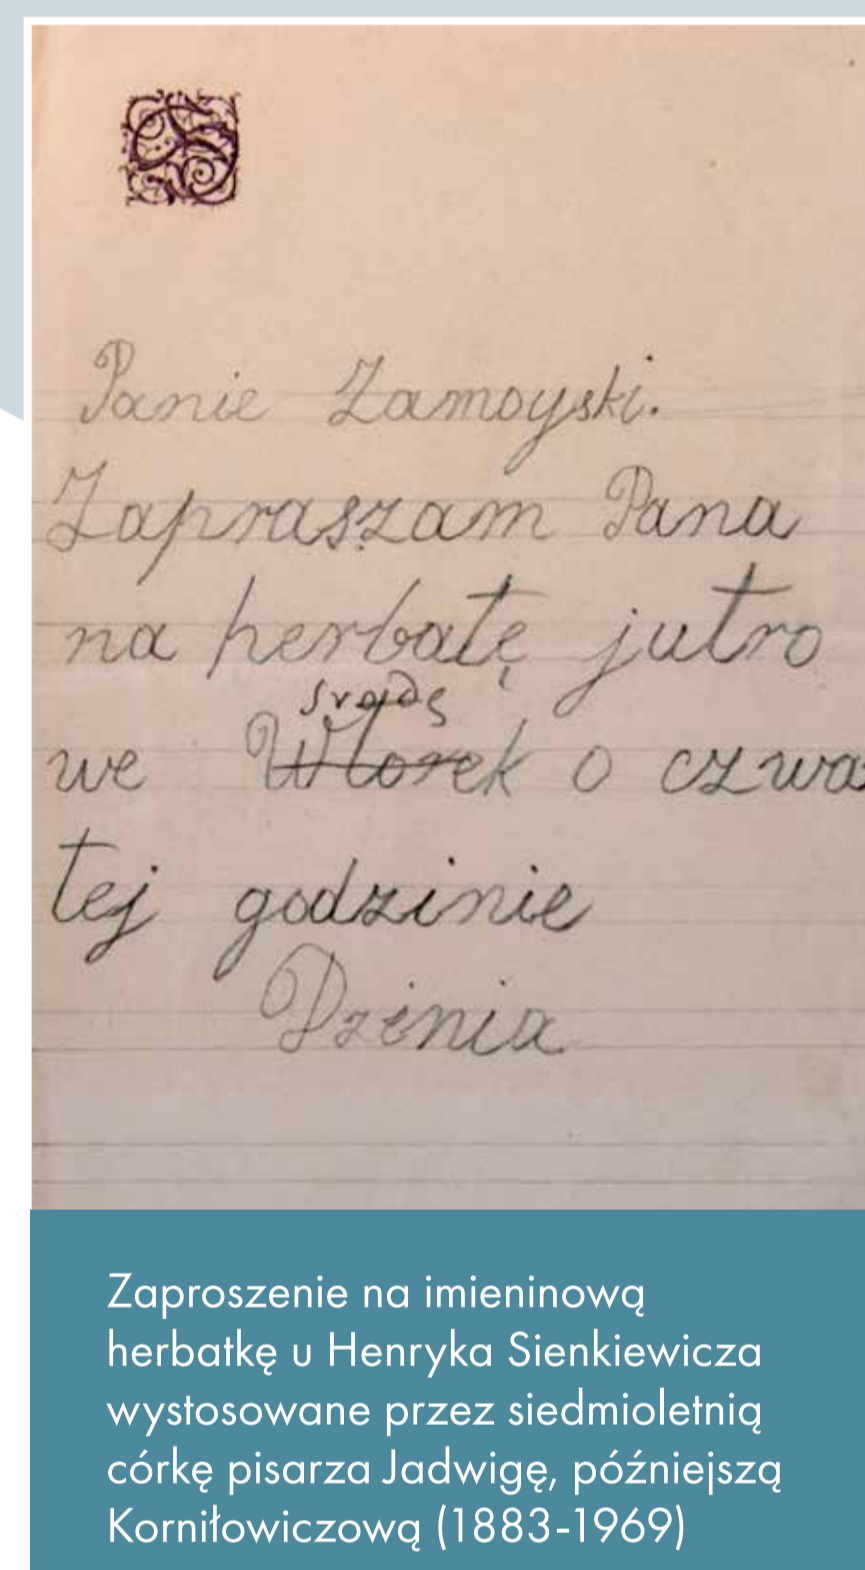 Panie Zamoyski.
Zapraszam Pana
na herbatę jutro
srodę
we Wtorek o czwar
tej godzinie
Dzinia
Zaproszenie na imieninową
herbatkę u Henryka Sienkiewicza
wystosowane przez siedmioletnią
córkę pisarza Jadwigę, późniejszą
Korniłowiczową (1883-1969)